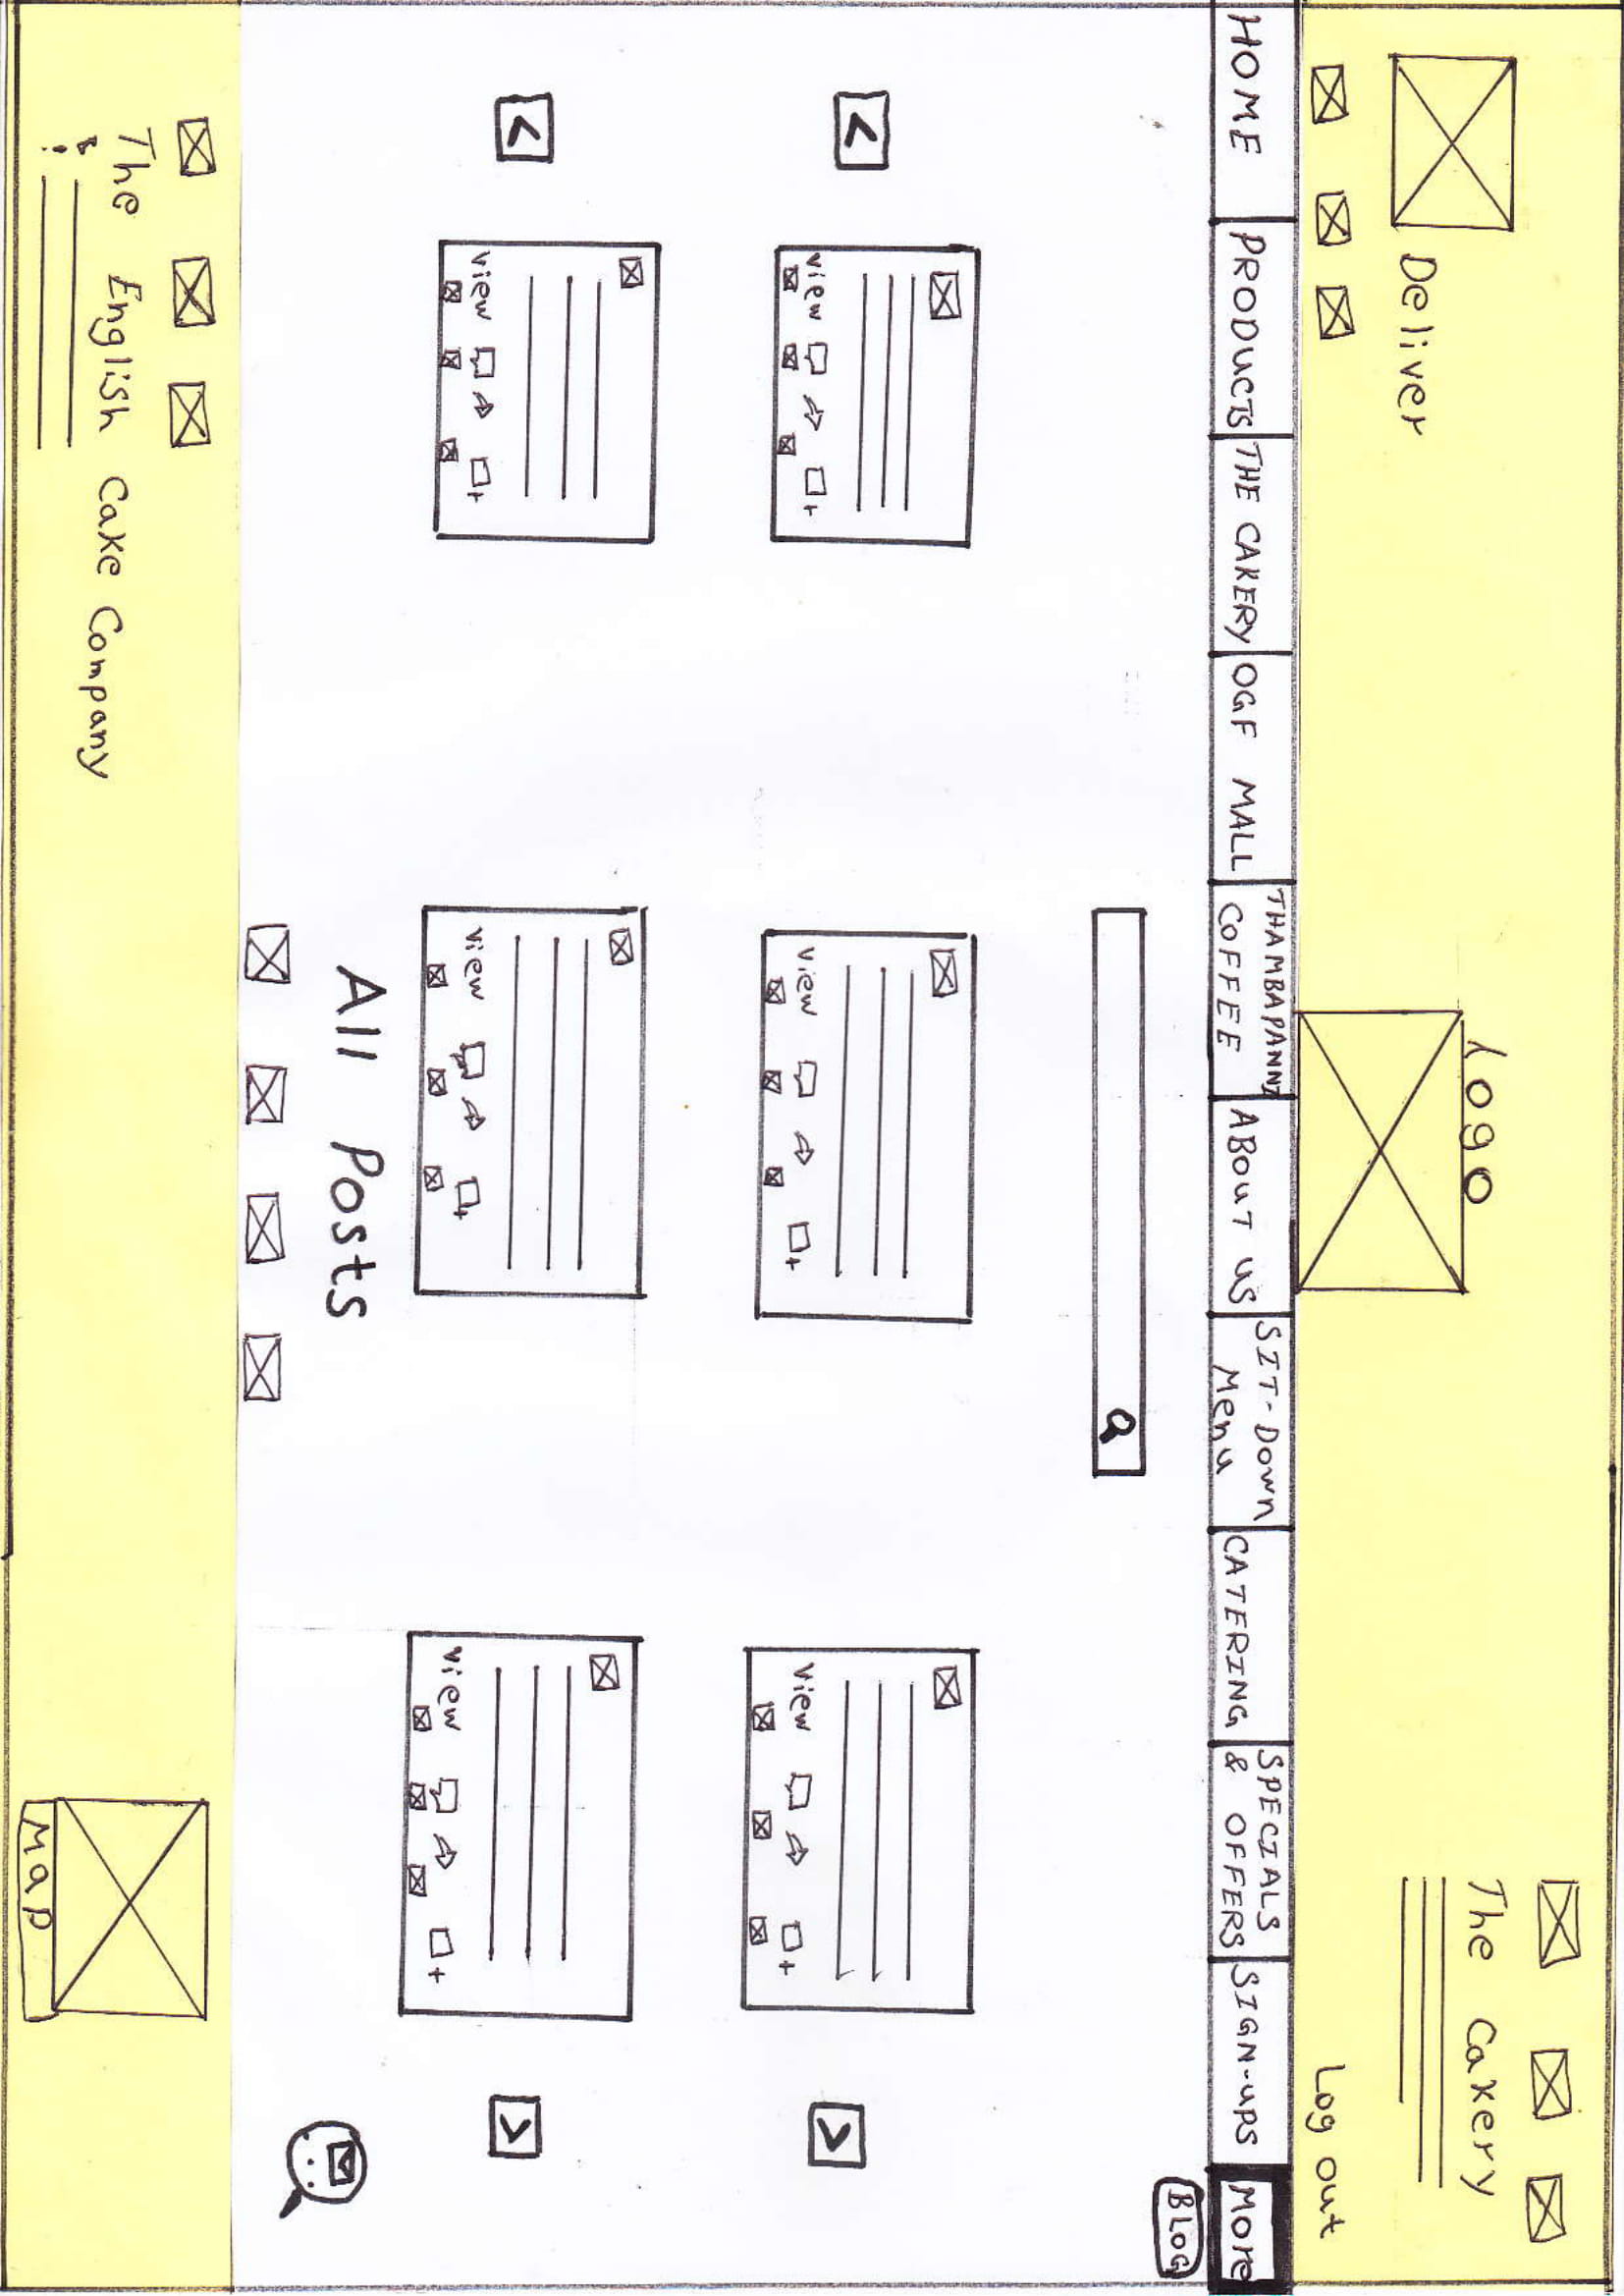 logo
The Cakery
Deliver
Log out
HOME
PRODUCTS
THE CAKERY
OGF MALL
THAMBAPANNI
COFFEE
ABOUT US
SIT-DOWN
Menu
CATERING
SPECIALS
& OFFERS
SIGN-UPS
More
BLOG
<
view
view
view
>
<
view
view
view
>
All Posts
The English Cake Company
Map